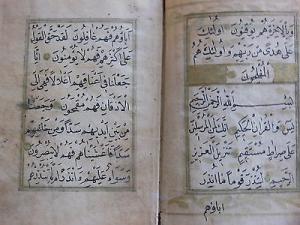 وبالاخرة هم يوقنون اولئك
على هدى من ربهم واولئك هم
المفلحون
بسم الله الرحمن الرحيم
يس والقران الحكيم انك لمن المرسلين
على صراط مستقيم تنزيل العزيز
الرحيم لتنذر قوما ما انذر
اباؤهم
آباؤهم فهم غافلون لقد حق القول
على اكثرهم فهم لا يؤمنون انا
جعلنا في اعناقهم اغلالا فهي الى
الاذقان فهم مقمحون وجعلنا
من بين ايديهم سدا ومن خلفهم
سدا فاغشيناهم فهم لا يبصرون
وسواء عليهم